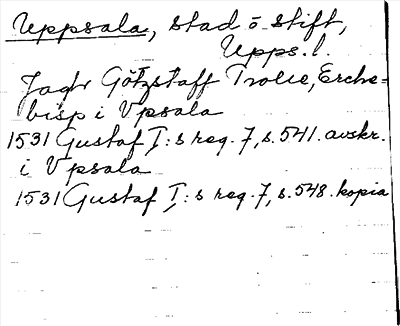 Uppsala, stad o stift,
Upps. l.
Jagh Götstaff Trolle, Erche-
bisp i Vpsala
1531 Gustaf I:s reg. 7, s. 541. avskr.
i Vpsala
1531 Gustaf I:s reg. 7, s. 548. kopia